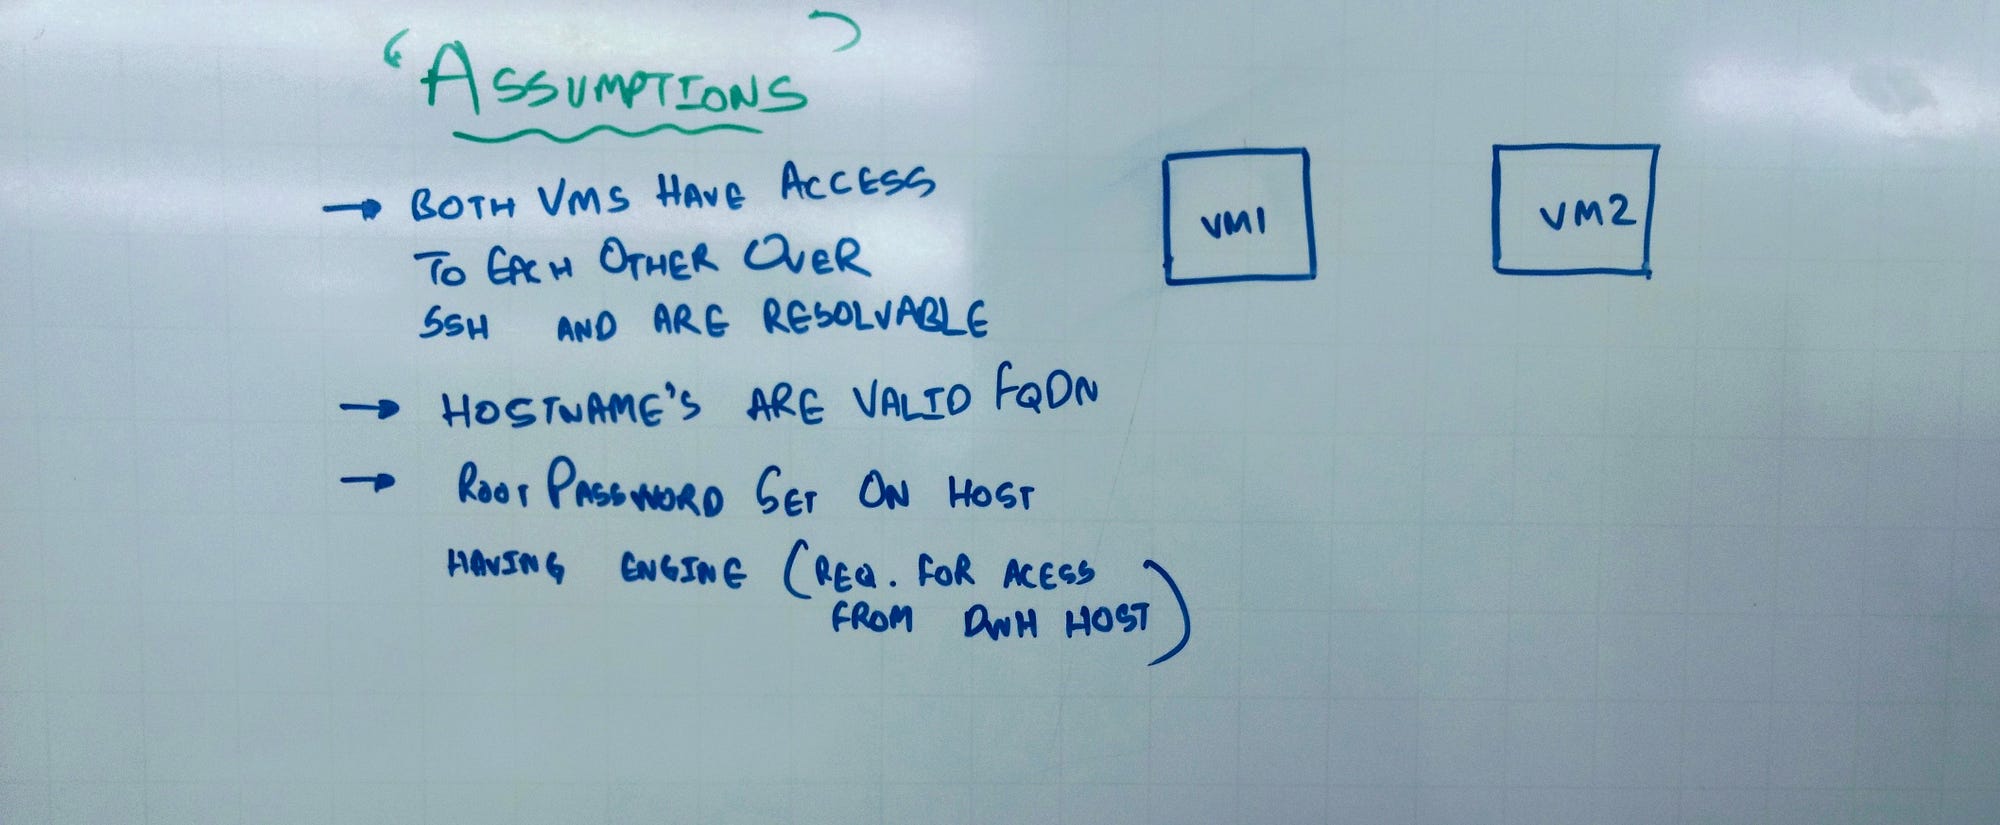 "ASSUMPTIONS"
→ BOTH VMS HAVE ACCESS
TO EACH OTHER OVER
SSH AND ARE RESOLVABLE
→ HOSTNAME'S ARE VALID FQDN
→ ROOT PASSWORD SET ON HOST
HAVING ENGINE (REQ. FOR ACESS
FROM DWH HOST)
VM1
VM2